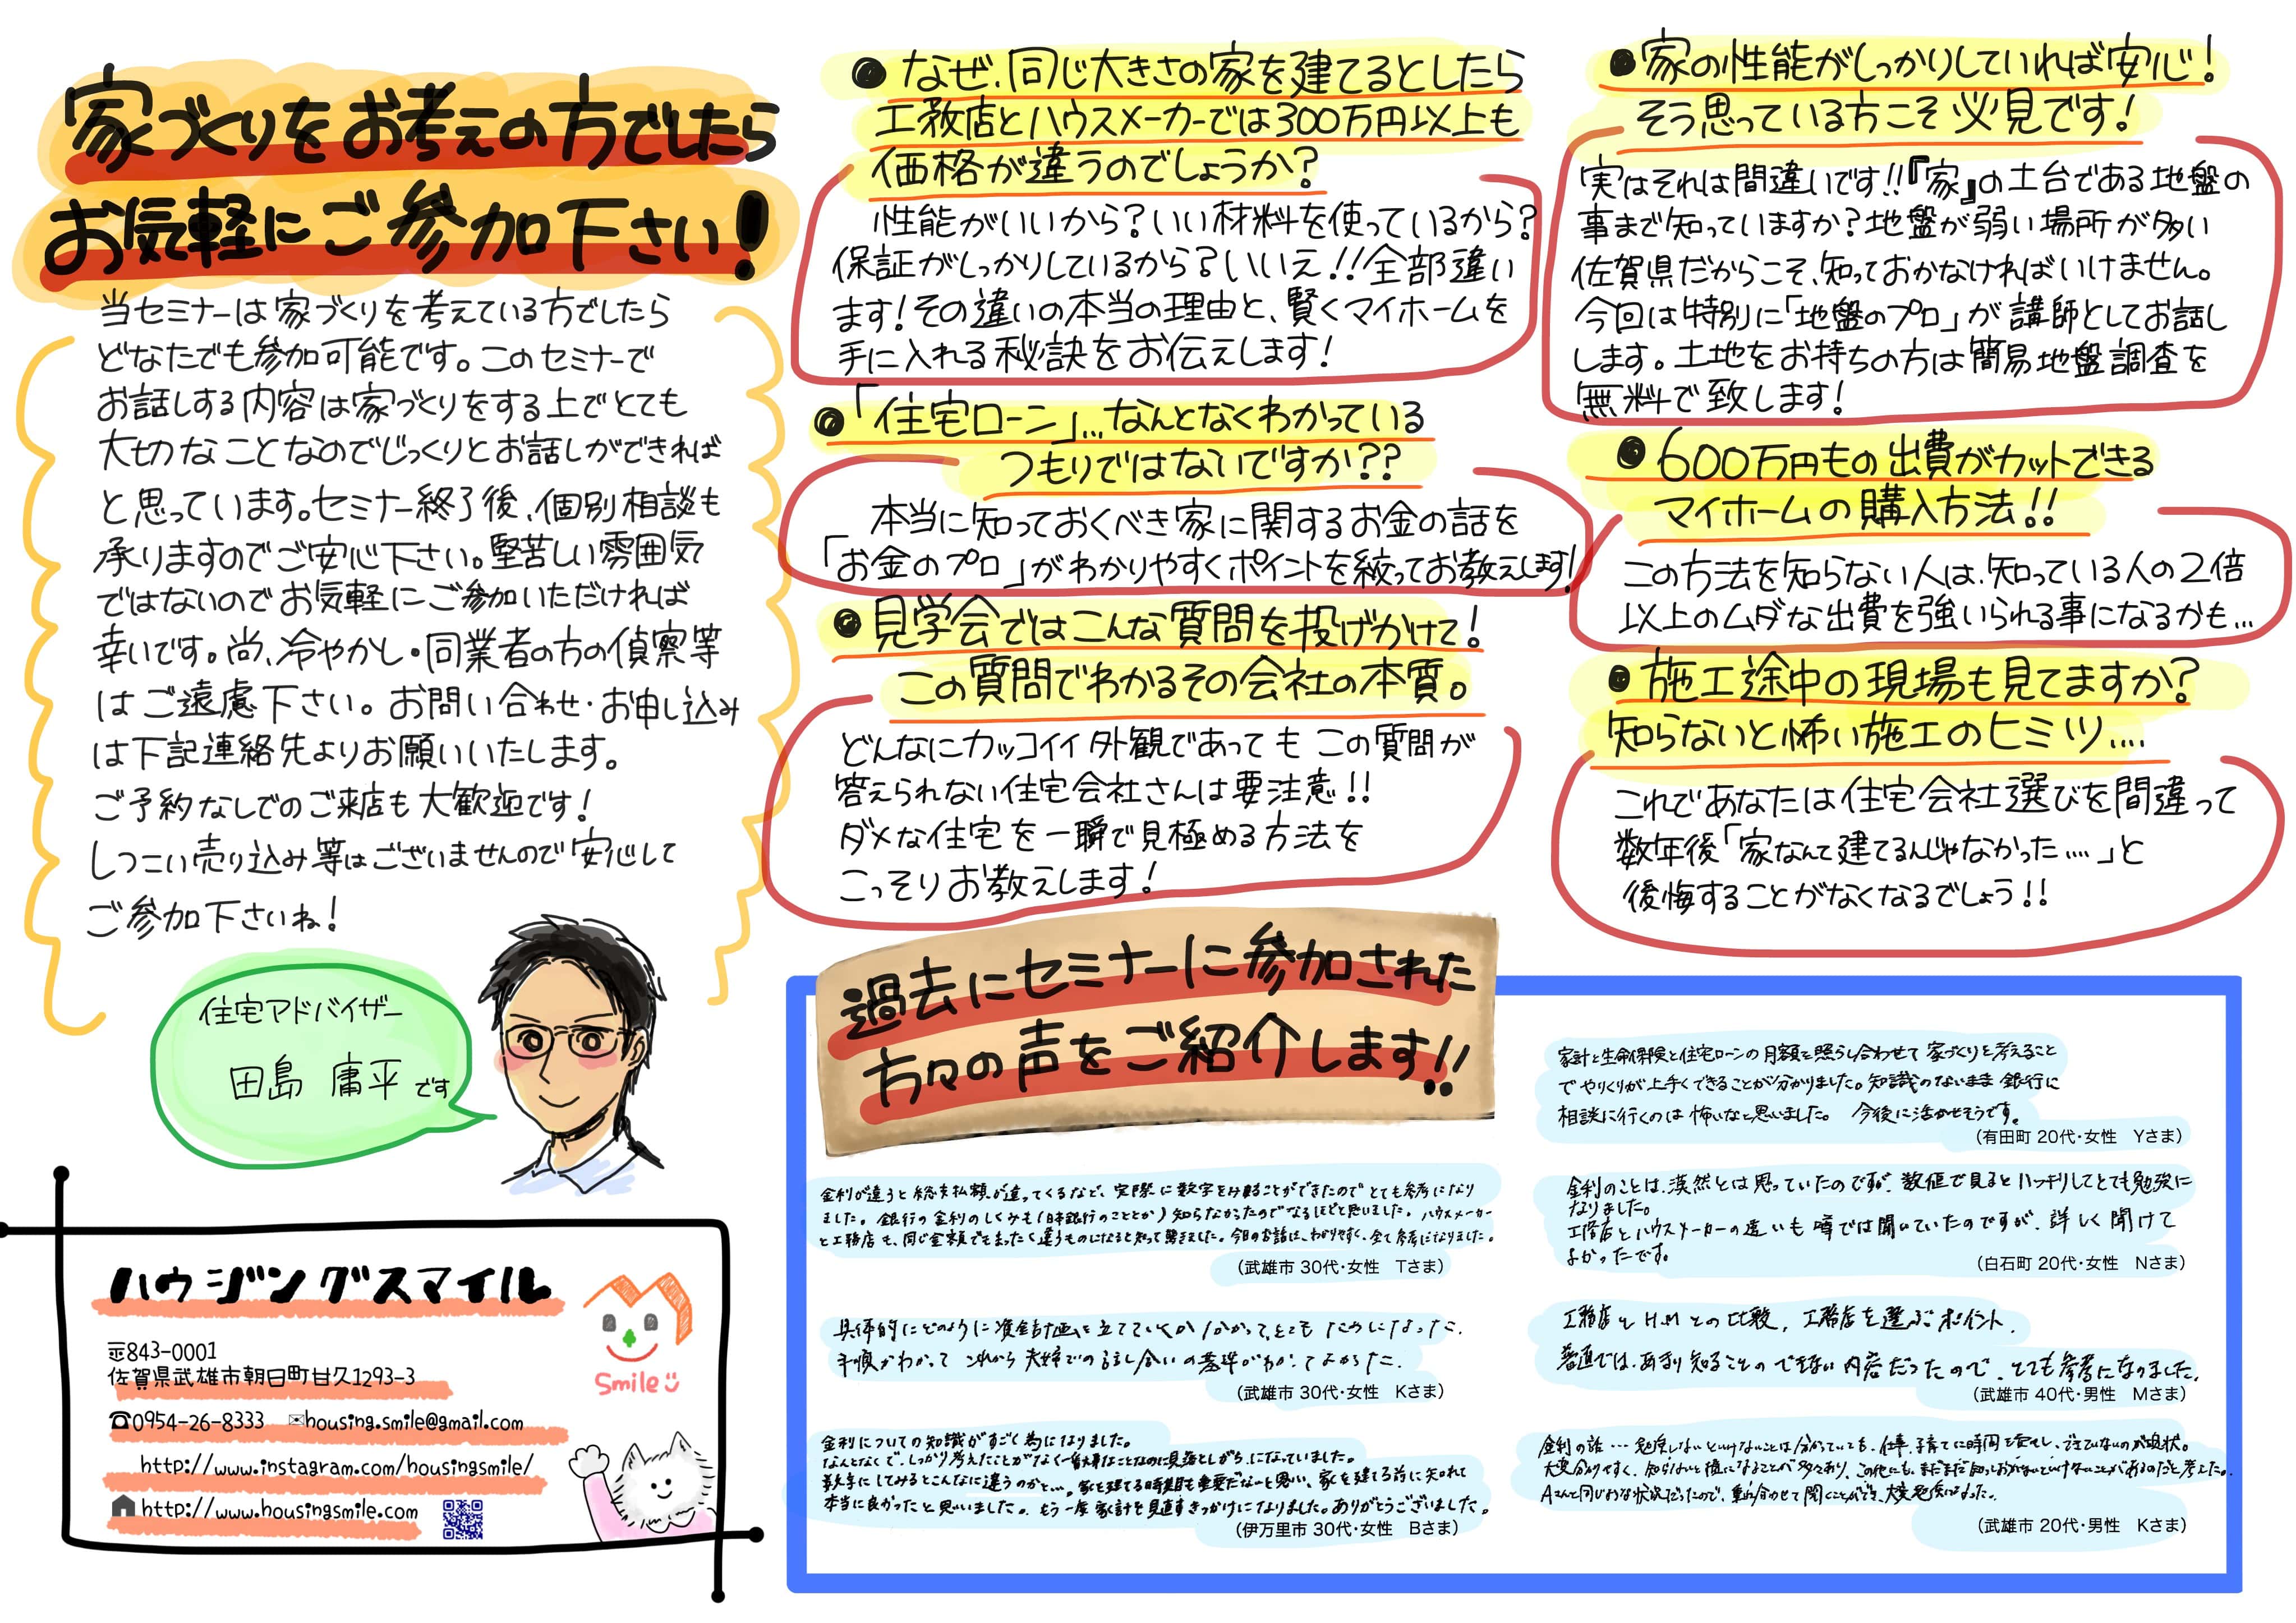 家づくりをお考えの方でしたら
お気軽にご参加下さい!
当セミナーは家づくりを考えている方でしたら
どなたでも参加可能です。このセミナーで
お話しする内容は家づくりをする上でとても
大切なことなのでじっくりとお話しができれば
と思っています。セミナー終了後、個別相談も
承りますのでご安心下さい。堅苦しい雰囲気
ではないのでお気軽にご参加いただければ
幸いです。尚、冷やかし・同業者の方の偵察等
はご遠慮下さい。お問い合わせ・お申し込み
は下記連絡先よりお願いいたします。
ご予約なしでのご来店も大歓迎です!
しつこい売り込み等はございませんので安心して
ご参加下さいね!
住宅アドバイザー
田島 庸平です
ハウジングスマイル
Smile
〒843-0001
佐賀県武雄市朝日町甘久1293-3
☎0954-26-8333 ✉housing.smile@gmail.com
http://www.instagram.com/housingsmile/
http://www.housingsmile.com
●なぜ、同じ大きさの家を建てるとしたら
工務店とハウスメーカーでは300万円以上も
価格が違うのでしょうか?
性能がいいから?いい材料を使っているから?
保証がしっかりしているから?いいえ!!全部違い
ます!その違いの本当の理由と、賢くマイホームを
手に入れる秘訣をお伝えします!
●「住宅ローン」…なんとなくわかっている
つもりではないですか??
本当に知っておくべき家に関するお金の話を
「お金のプロ」がわかりやすくポイントを絞ってお教えします!
●見学会ではこんな質問を投げかけて!
この質問でわかるその会社の本質。
どんなにカッコイイ外観であってもこの質問が
答えられない住宅会社さんは要注意!!
ダメな住宅を一瞬で見極める方法を
こっそりお教えします!
●家の性能がしっかりしていれば安心!
そう思っている方こそ必見です!
実はそれは間違いです!!『家』の土台である地盤の
事まで知っていますか?地盤が弱い場所が多い
佐賀県だからこそ、知っておかなければいけません。
今回は特別に「地盤のプロ」が講師としてお話し
します。土地をお持ちの方は簡易地盤調査を
無料で致します!
●600万円もの出費がカットできる
マイホームの購入方法!!
この方法を知らない人は、知っている人の2倍
以上のムダな出費を強いられる事になるかも…
●施工途中の現場も見てますか?
知らないと怖い施工のヒミツ….
これであなたは住宅会社選びを間違って
数年後「家なんて建てるんじゃなかった….」と
後悔することがなくなるでしょう!!
過去にセミナーに参加された
方々の声をご紹介します!!
金利が違うと総支払額が違ってくるなど、実際に数字をみることができたのでとても参考になり
ました。銀行の金利のしくみも(日本銀行のこととか)知らなかったのでなるほどと思いました。ハウスメーカー
と工務店も、同じ金額でもまったく違うものになると知って驚きました。今日のお話は、わかりやすく、全て参考になりました。
(武雄市 30代・女性 Tさま)
具体的にどのように資金計画を立てていくか分かって、とてもためになった。
手順がわかって これから夫婦での話し合いの基準がわかってよかった。
(武雄市 30代・女性 Kさま)
金利についての知識がすごく為になりました。
なんとなくで、しっかり考えたことがなく一番大事なことなのに見落としがちになっていました。
数字にしてみるとこんなに違うのかと…。家を建てる時期も重要だなーと思い、家を建てる前に知れて
本当に良かったと思いました。もう一度家計を見直すきっかけになりました。ありがとうございました。
(伊万里市 30代・女性 Bさま)
家計と生命保険と住宅ローンの月額を照らし合わせて家づくりを考えること
でやりくりが上手くできることが分かりました。知識のないまま銀行に
相談に行くのは怖いなと思いました。 今後に活かせそうです。
(有田町 20代・女性 Yさま)
金利のことは、漠然とは思っていたのですが、数値で見るとハッキリしてとても勉強に
なりました。
工務店とハウスメーカーの違いも噂では聞いていたのですが、詳しく聞けて
よかったです。
(白石町 20代・女性 Nさま)
工務店とH.Mとの比較、工務店を選ぶポイント、
普通では、あまり知ることのできない内容だったので、とても参考になりました。
(武雄市 40代・男性 Mさま)
金利の話…勉強しないといけないことは分かっていても、仕事、子育てに時間を 、できていないのが現状。
大変分かりやすく、知らないと損になることが多々あり、この他にも、まだまだ知っておかないといけないことがあるのだと考えた。
Aさんと同じような状況だったので、重ね合わせて聞くことができ、大変勉強になった。
(武雄市 20代・男性 Kさま)